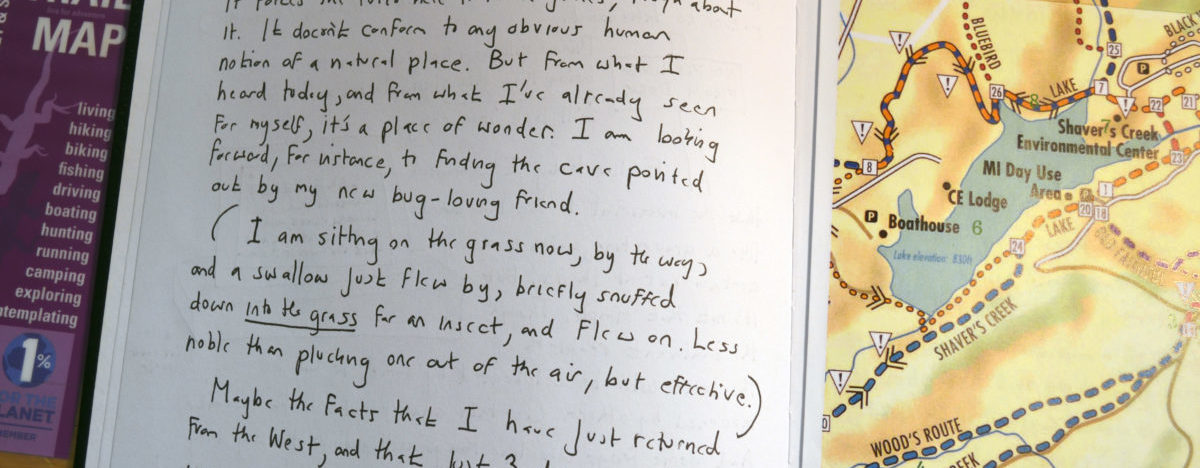 MAP
living
hiking
biking
fishing
driving
boating
hunting
running
camping
exploring
ntemplating
1%
FOR THE
PLANET
MEMBER
about
it. It doesn't conform to any obvious human
notion of a natural place. But from what I
heard today, and from what I've already seen
for myself, it's a place of wonder. I am looking
forward, for instance, to finding the cave pointed
out by my new bug-loving friend.
(I am sitting on the grass now, by the way,
and a swallow just flew by, briefly snuffed
down into the grass for an insect, and flew on. Less
noble than plucking one out of the air, but effective.)
Maybe the facts that I have just returned
from the West, and that
BLUEBIRD
BLACK
25
P
26
8
LAKE
7
22
21
7
Shaver's Creek
Environmental Center
23
8
MI Day Use
Area
1
20
18
CE Lodge
P
Boathouse 6
LAKE
24
Lake elevation: 830ft
SHAVER'S CREEK
WOOD'S ROUTE